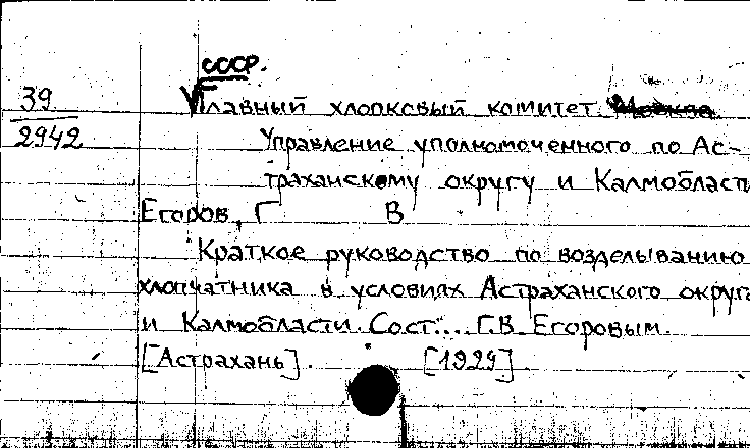 СССР.
39
2942
Главный хлопковый комитет.
Управление уполномоченного по Ас-
траханскому округу и Калмобласти
Егоров, Г В
Краткое руководство по возделыванию
хлопчатника в условиях Астраханского округа
и Калмобласти. Сост.... Г.В. Егоровым.
[Астрахань]. [1929].